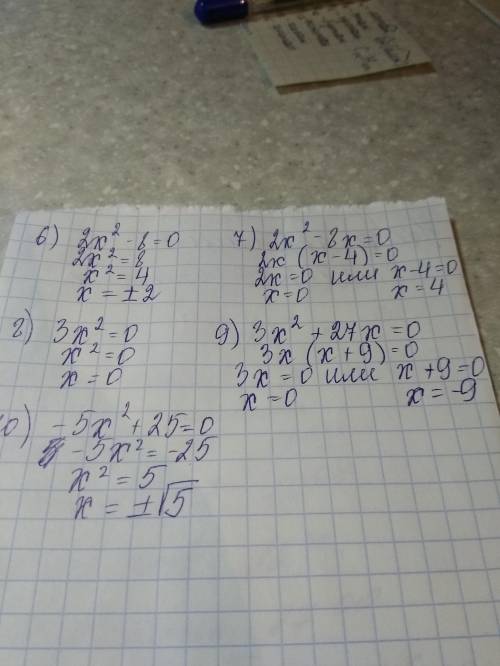 6) 2x² - 8 = 0
2x² = 8
x² = 4
x = ±2
7) 2x² - 8x = 0
2x (x - 4) = 0
2x = 0 или x - 4 = 0
x = 0 x = 4
8) 3x² = 0
x² = 0
x = 0
9) 3x² + 27x = 0
3x (x + 9) = 0
3x = 0 или x + 9 = 0
x = 0 x = -9
10) -5x² + 25 = 0
-5x² = -25
x² = 5
x = ±√5